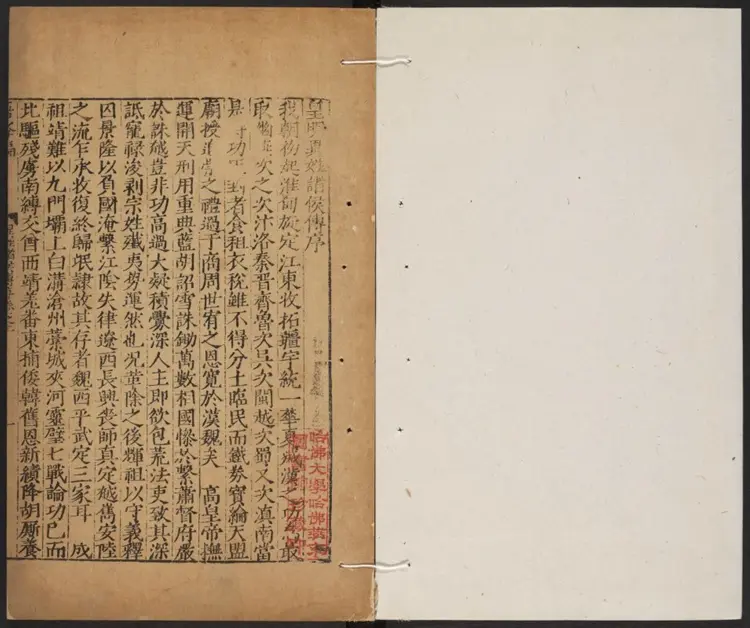 皇明異姓諸侯傳序
我朝肇起淮甸旋定江東收拓疆宇統一華夏 漢 方 最
取 次之次汴洛秦晉齊魯次吳次閩越次蜀又次滇南當
是 功 者食租衣稅雖不得分土臨民而鐵券寶綸天盟
廟授 之禮過于商周世宥之恩寬於漢魏矣 高皇帝撫
運開天刑用重典藍胡詔雪誅鋤萬數相國慘於繫蕭督府嚴
於誅越豈非功高過大緣積釁深人主即欲包荒法吏致其深
詆寵祿浚剝宗姓殲夷勞運然也況革除之後輝祖以守義釋
囚景隆以負國淹繫江陰失律遼西長興喪師真定越雟安陸
之流乍承收復終歸氓隸故其存者魏西平武定三家耳 成
祖靖難以九門壩上白溝滄州藁城夾河靈璧七戰論功已而
北驅殘虜南縛交酋西靖羌番東捕倭韓舊恩新績降胡廝養
哈佛大學哈佛燕京